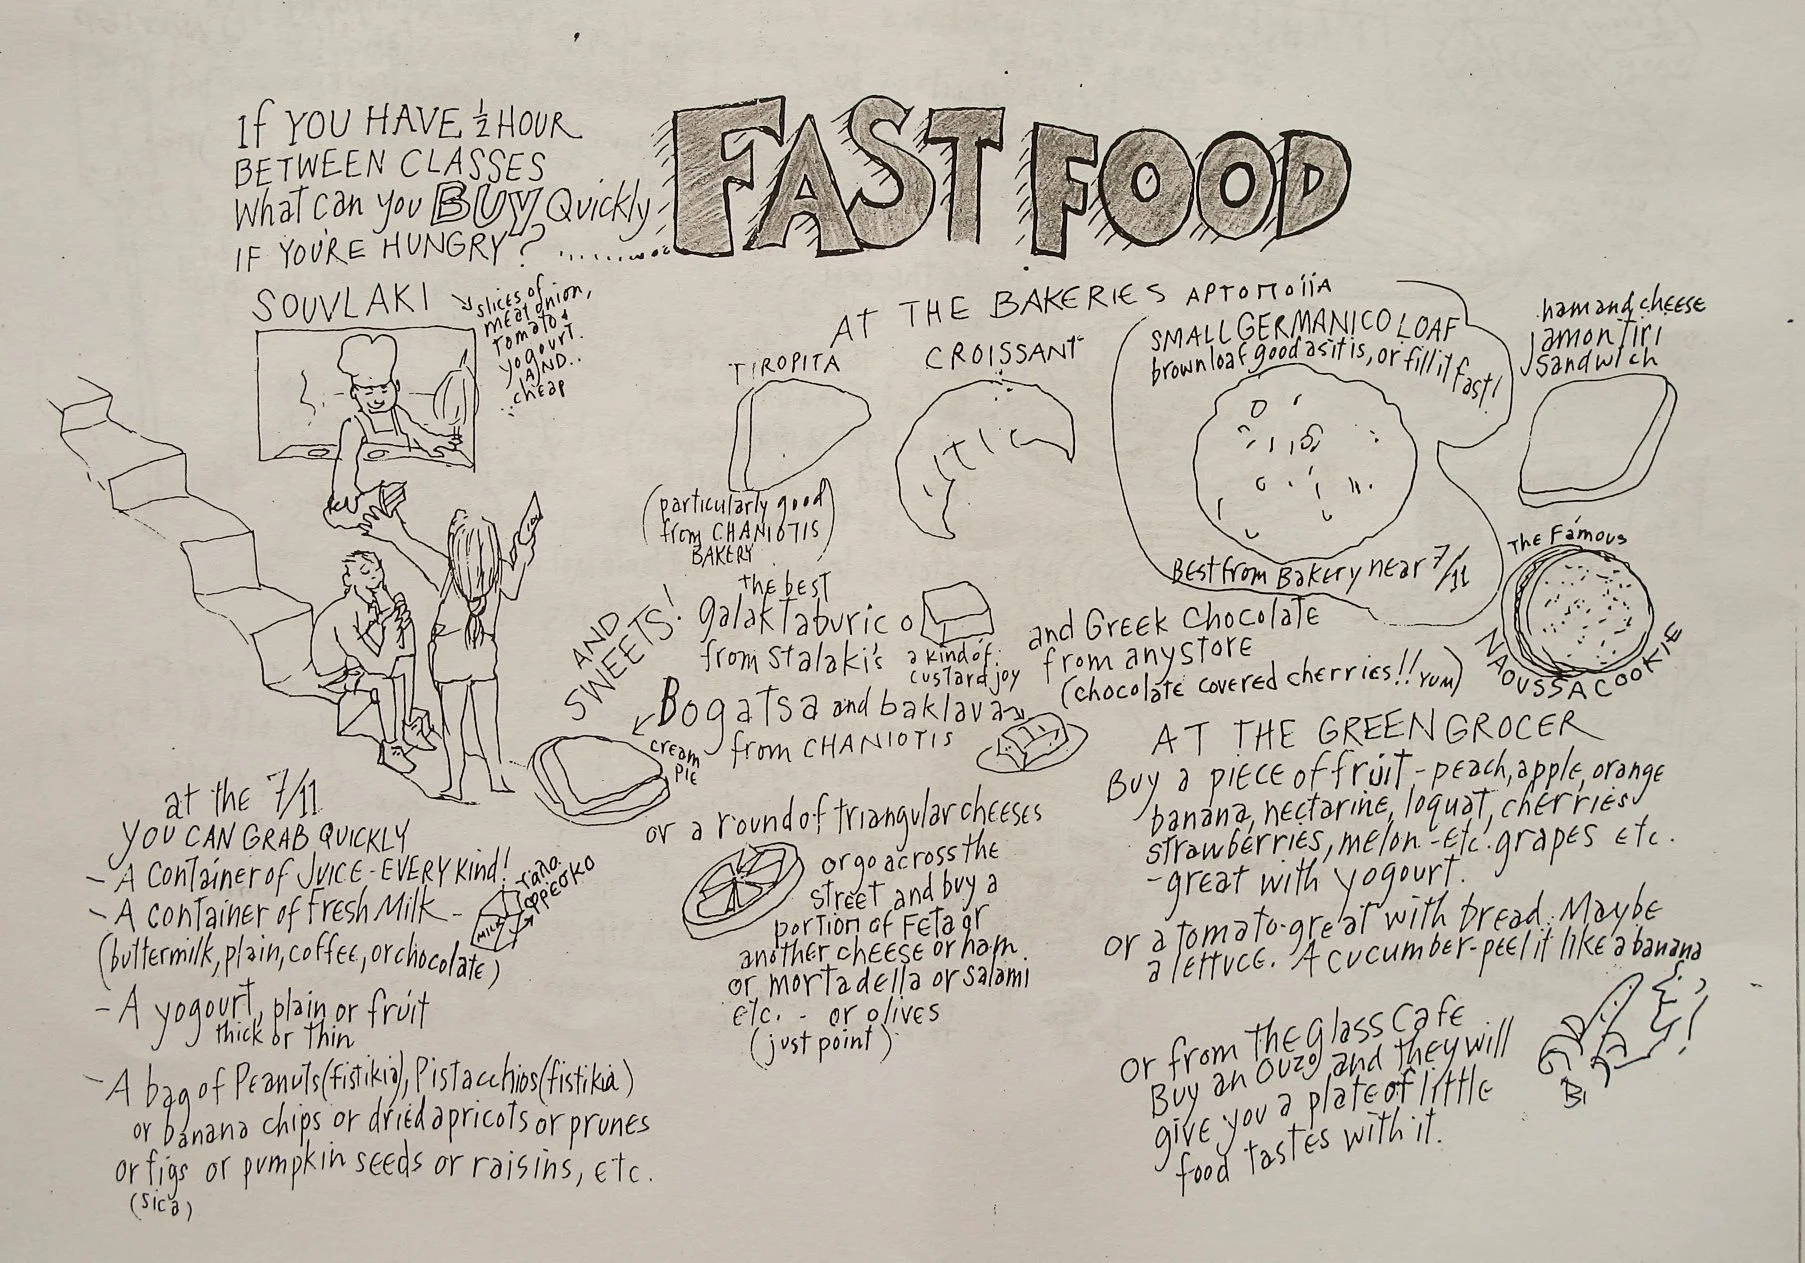 If YOU HAVE ½ HOUR
BETWEEN CLASSES
What can you BUY Quickly
IF YOU'RE HUNGRY? ..........
FAST FOOD
SOUVLAKI
slices of
meat onion,
tomato &
yogourt.
AND..
cheap
AT THE BAKERIES ΑΡΤΟΠΟΪΪΑ
TIROPITA
(particularly good
from CHANIOTIS
BAKERY)
CROISSANT
SMALL GERMANICO LOAF
brown loaf good as it is, or fill it fast!
Best from Bakery near 7/11
ham and cheese
jamon Tiri
Sandwich
The Famous
NAOUSSA COOKIE
AND
SWEETS!
the best
galaktaburico
from Stalaki's
a kind of
custard joy
and Greek Chocolate
from any store
(chocolate covered cherries!! YUM)
Bogatsa and baklava
from CHANIOTIS
cream
PIE
or a round of triangular cheeses
or go across the
street and buy a
portion of Feta or
another cheese or ham
or mortadella or salami
etc. - or olives
(just point)
at the 7/11
YOU CAN GRAB QUICKLY
- A Container of JUICE - EVERY kind!
- A container of fresh Milk -
MILK
γαλα
φρεσκο
(buttermilk, plain, coffee, or chocolate)
- A yogourt, plain or fruit
thick or thin
- A bag of Peanuts (fistikia), Pistacchios (fistikia)
or banana chips or dried apricots or prunes
or figs or pumpkin seeds or raisins, etc.
(sica)
AT THE GREEN GROCER
Buy a piece of fruit - peach, apple, orange
banana, nectarine, loquat, cherries
strawberries, melon - etc. grapes etc.
- great with yogourt.
or a tomato - great with bread. Maybe
a lettuce. A cucumber - peel it like a banana
or from the Glass Cafe
Buy an ouzo, and they will
give you a plate of little
food tastes with it.